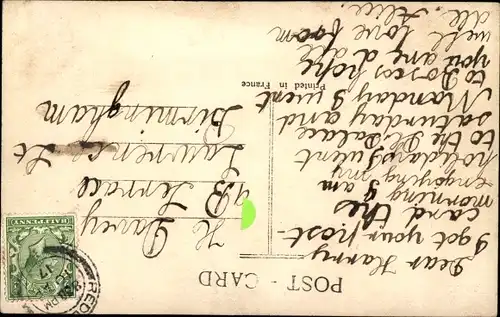 POST - CARD
Dear Harry
I got your post-
card this
morning I am
enjoying my
holidays I went
to the Palace
saturday and
Monday I went
to Boscos hope
you are all
well love from
all. Alice.
Printed in France
H Davey
Terrace
Lawrence St
Birmingham
HALFPENNY
PM
17